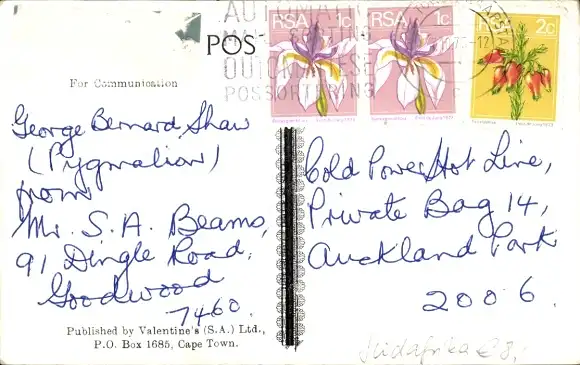 POS
AUTOMATIC
MAIL SORTING
OUTOMATIESE
POSSORTERING
RSA 1c
RSA 1c
RSA 2c
For Communication
George Bernard Shaw
(Pygmalion)
from
Mr. S.A. Beams,
91 Dingle Road,
Goodwood
7460.
Published by Valentine's (S.A.) Ltd.,
P.O. Box 1685, Cape Town.
Cold Power Hot Line,
Private Bag 14,
Auckland Park
2006.
Südafrika € 8,-